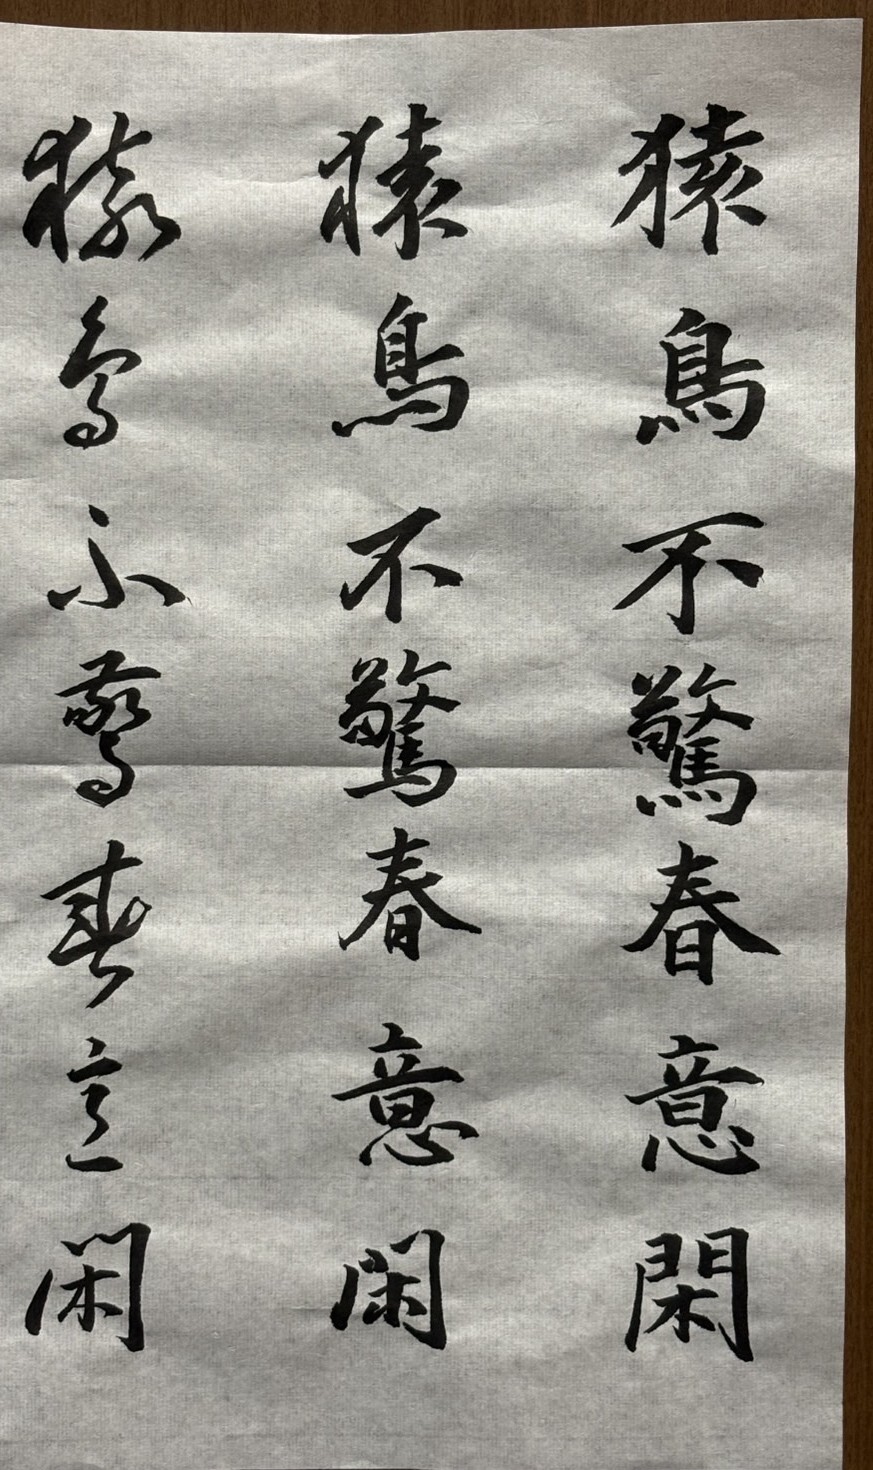 猿鳥不驚春意閑
猿鳥不驚春意閑
猿鳥不驚春意閑